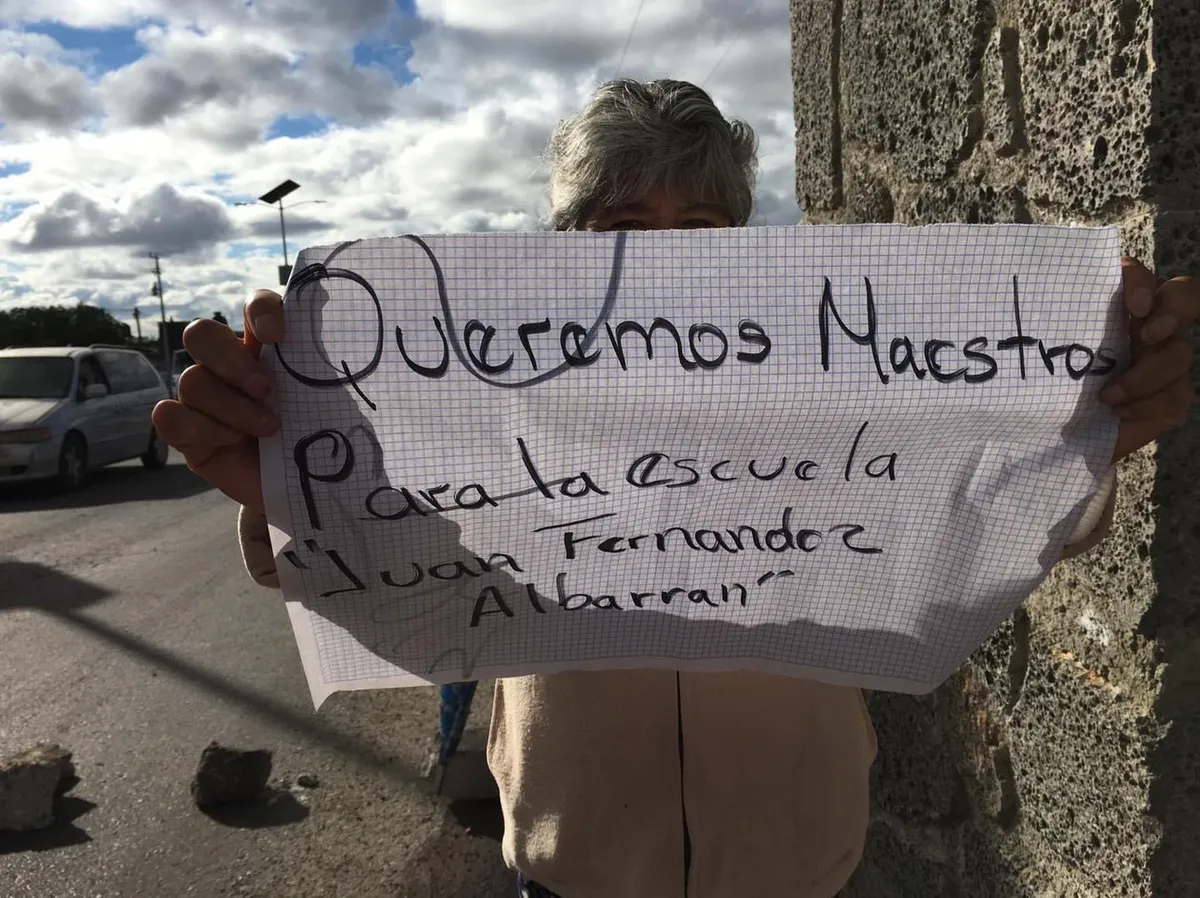 Queremos Maestros
Para la escuela
"Juan Fernandez
Albarran"